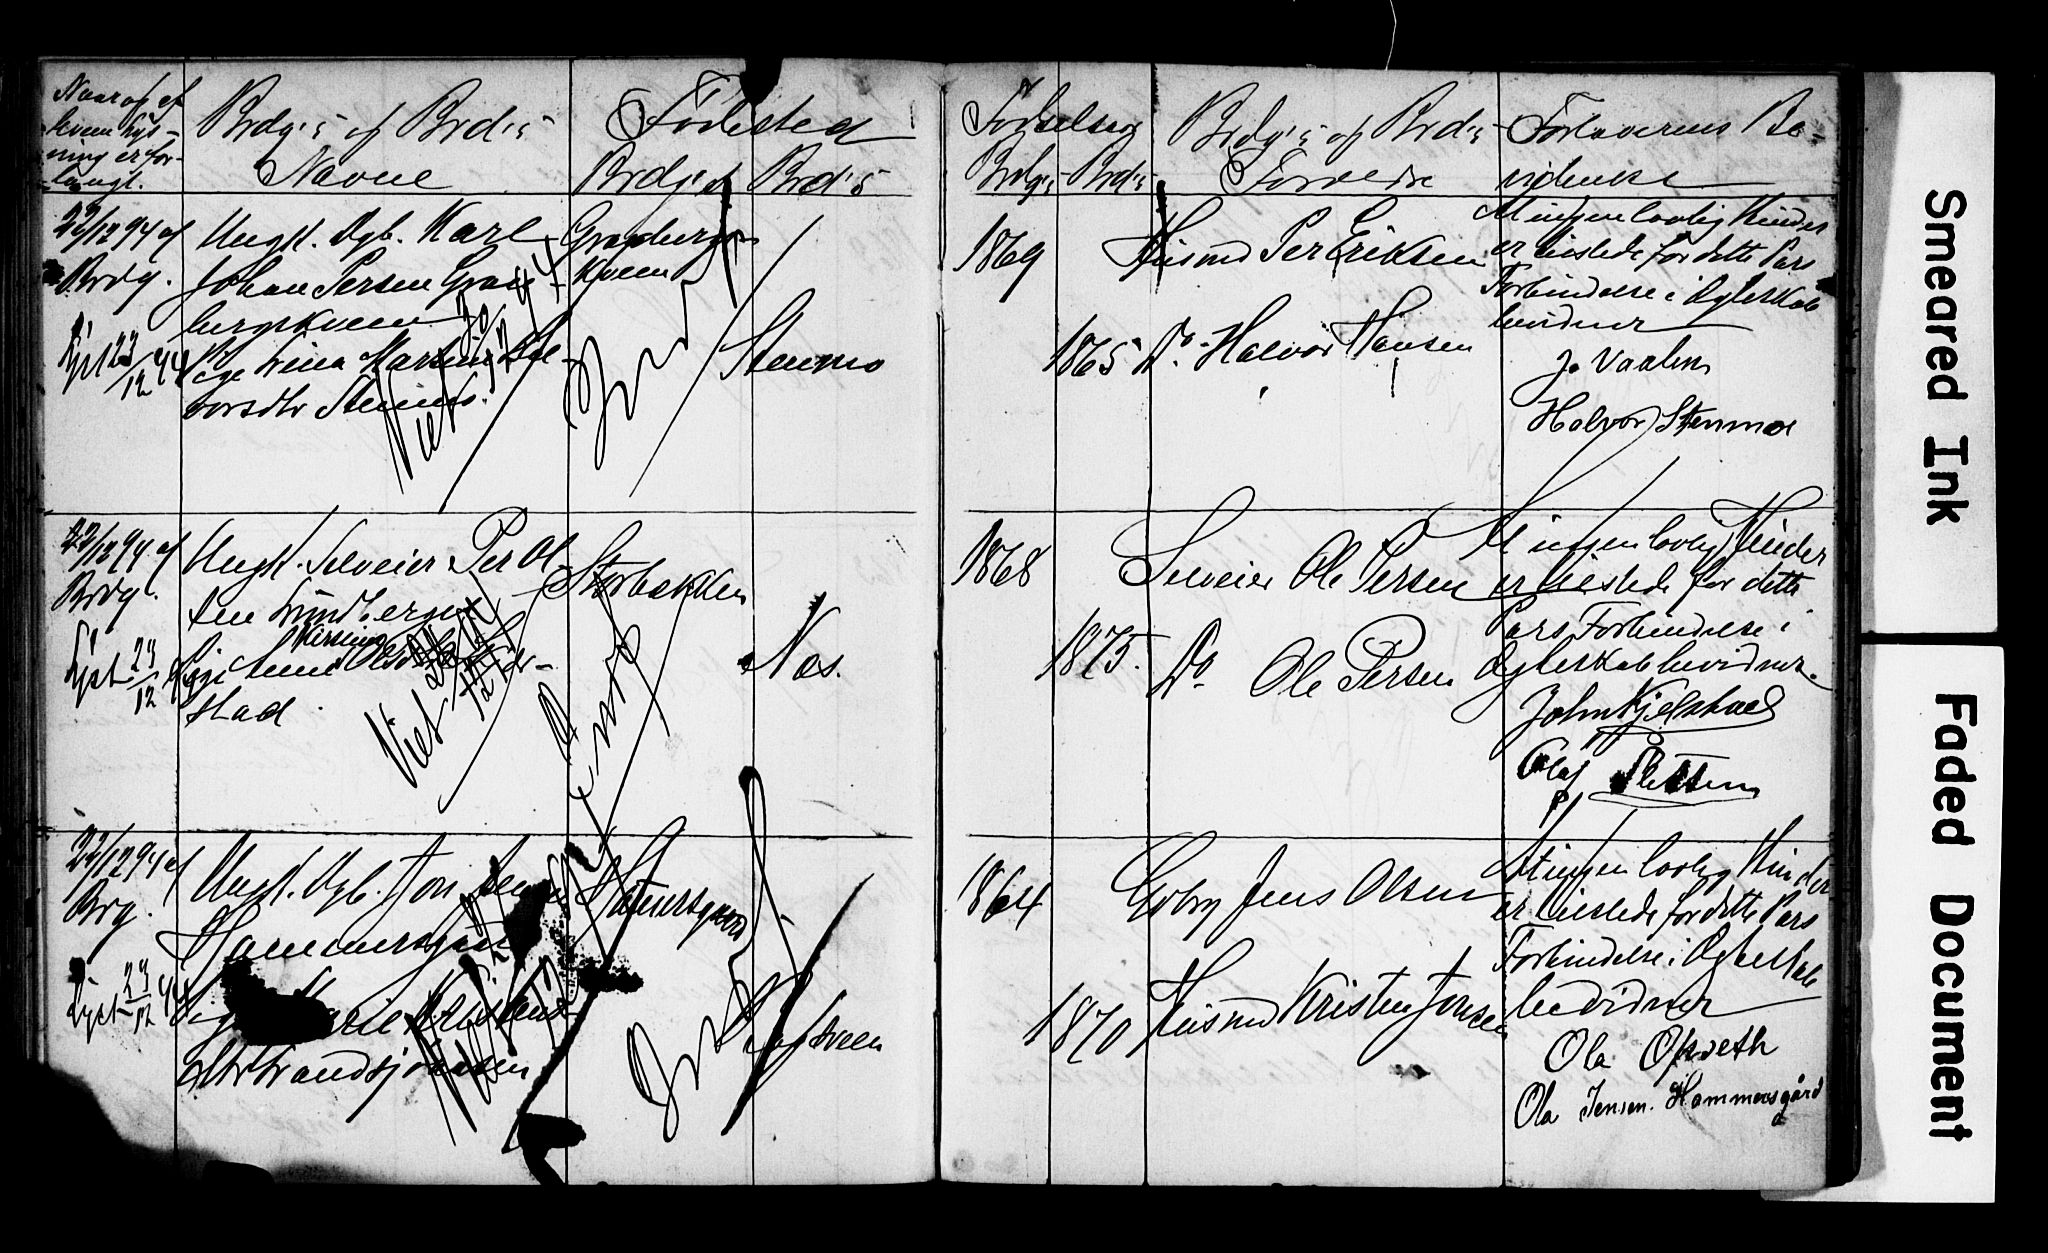 Naar og af
hvem Lys-
ning er for-
langt.
Brdg's og Brd's
Navne
Fødested
Brdg's Brd's
Fødselsaar
Brdg's Brd's
Brdg's og Brd's
Forældre
Forloverens Be-
vidnelse
22/12 94 af
Brdg.
Lyst 23/12 94
Ungk. Dgb. Karl
Johan Persen Gras-
bergskveen
Pige Lina
Stenmo.
Viet 30/12 94
Grasbergs-
kveen
Stenmo
1869
1865
Husmd Per Eriksen
Do. Halvor Hansen
At ingen lovlig Hinder
er tilstede for dette Pars
Forbindelse i Ægteskab
bevidner
J. Vaalen
Halvor Stenmoe
22/12 94 af
Brdg.
Lyst 23/12
Ungk. Selveier Per Ol-
sen Lundberget
Kirstine
Pige Anne
stad
Viet
Storbakken
Næs.
1868
1875.
Selveier Ole Persen
Do Ole Persen
At ingen lovlig Hinder
er tilstede for dette
Pars Forbindelse i
Ægteskab bevidner.
John Kjelstad
Olaf Sletten
22/12 94 af
Brg.
Lyst 23/12 94
Ungk. Dgb. Jon Jensen
Hammersgaard
Pige Marie
Viet
Hammersgaard
1864
1870
Gbrg Jens Olsen
Husmd Kristen Jonsen
At ingen lovlig Hinder
er tilstede for dette Pars
Forbindelse i Ægteskab
bevidner
Ola Opseth
Ola Jensen. Hammersgård
Smeared Ink
Faded Document